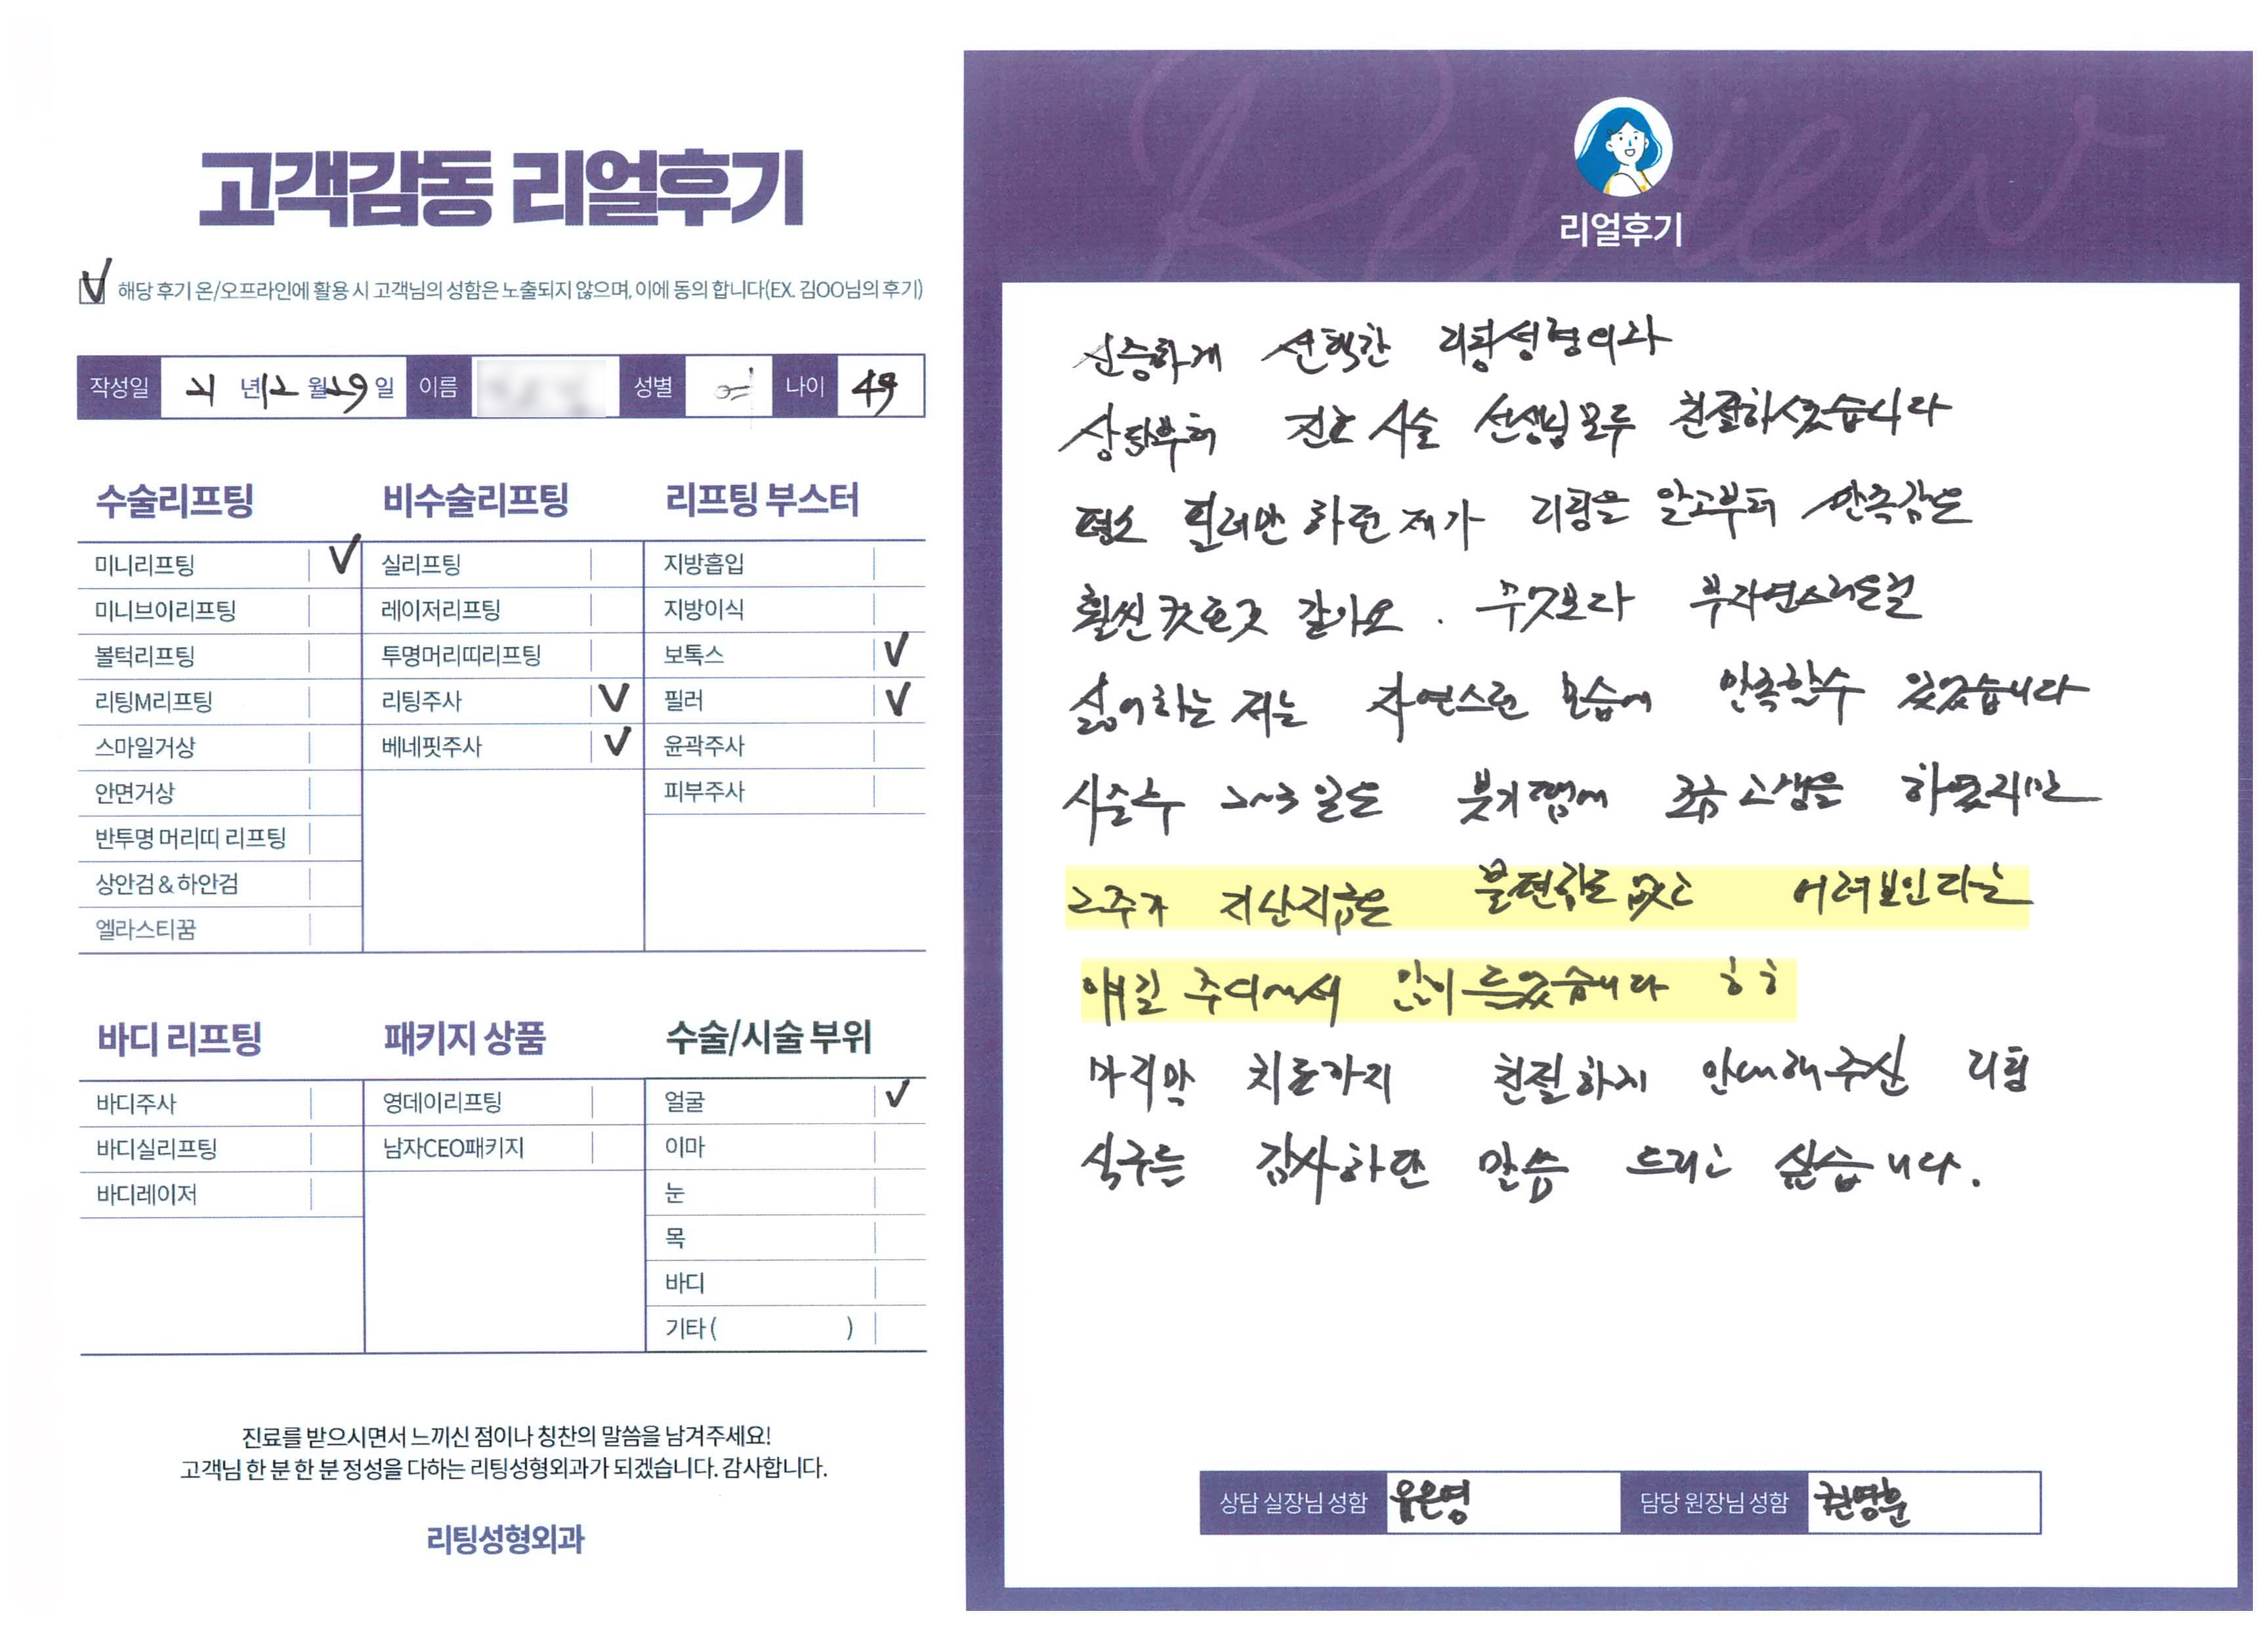 고객감동 리얼후기
해당 후기 온/오프라인에 활용 시 고객님의 성함은 노출되지 않으며, 이에 동의 합니다(EX. 김OO님의 후기)
작성일 21 년 12 월 29 일 이름 성별 여 나이 49
수술리프팅
미니리프팅 V
미니브이리프팅
볼턱리프팅
리팅M리프팅
스마일거상
안면거상
반투명 머리띠 리프팅
상안검 & 하안검
엘라스티꿈
비수술리프팅
실리프팅
레이저리프팅
투명머리띠리프팅
리팅주사 V
베네핏주사 V
리프팅 부스터
지방흡입
지방이식
보톡스 V
필러 V
윤곽주사
피부주사
바디 리프팅
바디주사
바디실리프팅
바디레이저
패키지 상품
영데이리프팅
남자CEO패키지
수술/시술 부위
얼굴 V
이마
눈
목
바디
기타 ( )
진료를 받으시면서 느끼신 점이나 칭찬의 말씀을 남겨주세요!
고객님 한 분 한 분 정성을 다하는 리팅성형외과가 되겠습니다. 감사합니다.
리팅성형외과
Review
리얼후기
신중하게 선택한 리팅성형외과
상담부터 간호 시술 선생님모두 친절하셨습니다
평소 필러만 하던 제가 리팅을 알고부터 만족감은
훨씬 컷흔것 같아요. 무엇보다 부자연스러운걸
싫어하는 저는 자연스런 모습에 만족할수 있었습니다
시술후 2~3일은 붓기땜에 조금 고생을 하였지만
2주가 지난지금은 불편함도 없고 어려보인다는
얘길 주위에서 많이 들었습니다 ㅎㅎ
마지막 치료까지 친절하게 안내해주신 리팅
식구들 감사하단 말씀 드리고 싶습니다.
상담 실장님 성함 유은영 담당 원장님 성함 권영훈